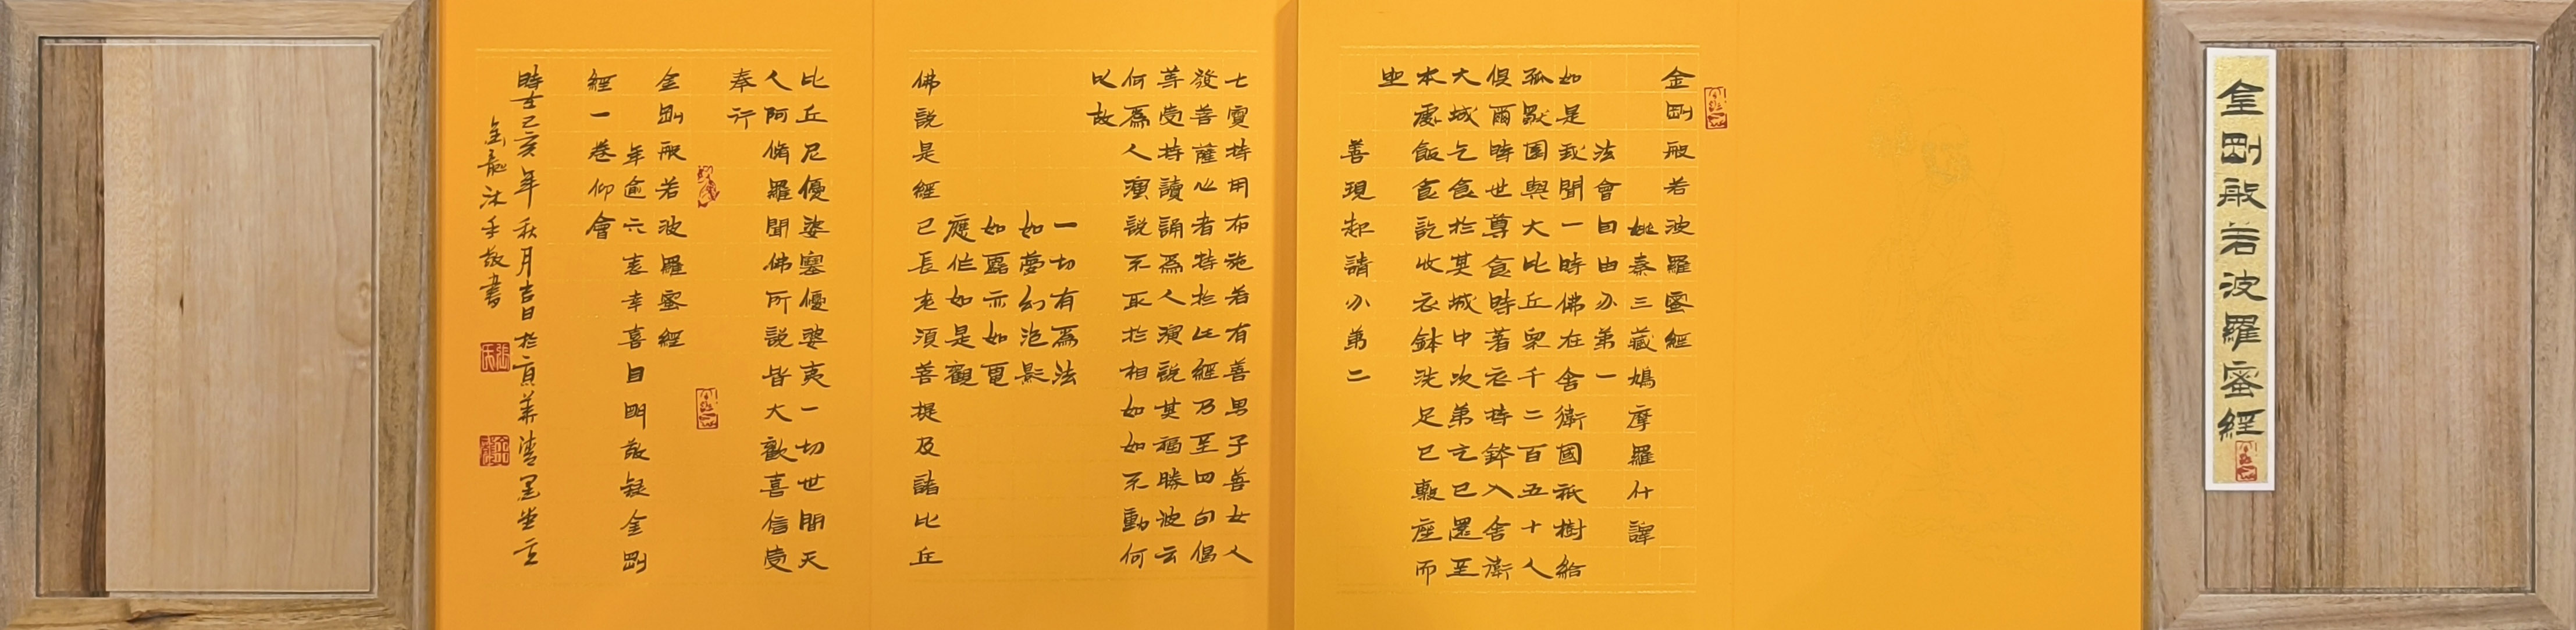 金剛般若波羅蜜經
金剛般若波羅蜜經
姚秦三藏鳩摩羅什譯
法會因由分第一
如是我聞一時佛在舍衛國祇樹給
孤獨園與大比丘衆千二百五十人
俱爾時世尊食時著衣持鉢入舍衛
大城乞食於其城中次第乞已還至
本處飯食訖收衣鉢洗足已敷座而
坐
善現起請分第二
七寶持用布施若有善男子善女人
發菩薩心者持於此經乃至四句偈
等受持讀誦爲人演說其福勝彼云
何爲人演說不取於相如如不動何
以故
一切有爲法
如夢幻泡影
如露亦如電
應作如是觀
佛說是經已長老須菩提及諸比丘
比丘尼優婆塞優婆夷一切世間天
人阿脩羅聞佛所說皆大歡喜信受
奉行
金剛般若波羅蜜經
年逾六袠幸喜目明敬疑金剛
經一卷仰會
己亥年秋月吉日於京華清墨堂主
金龍沐手敬書